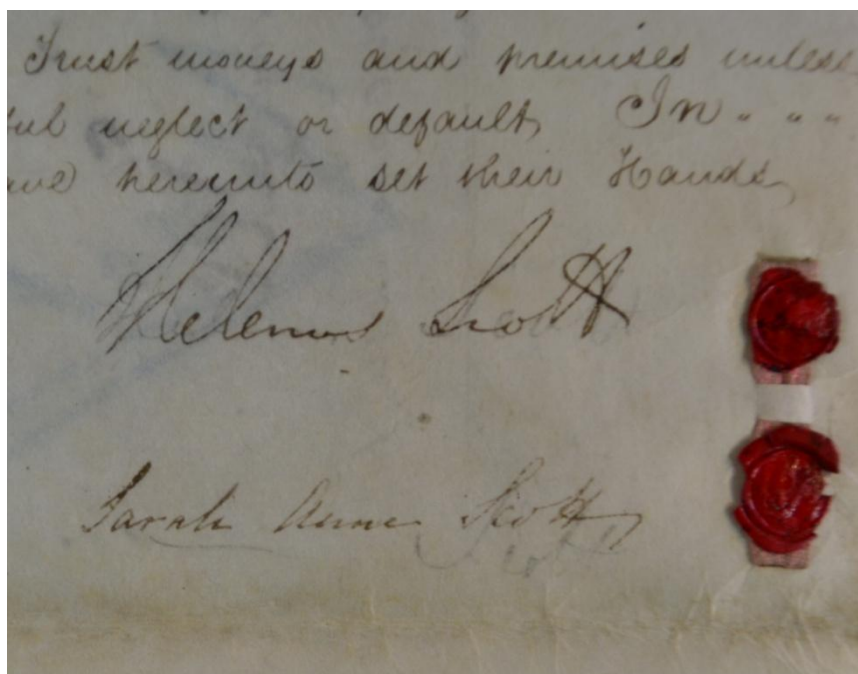 Trust moneys and premises unless
ful neglect or default In " " "
ave hereunto set their Hands
Helenus Scott
Sarah Anne Scott
Scott